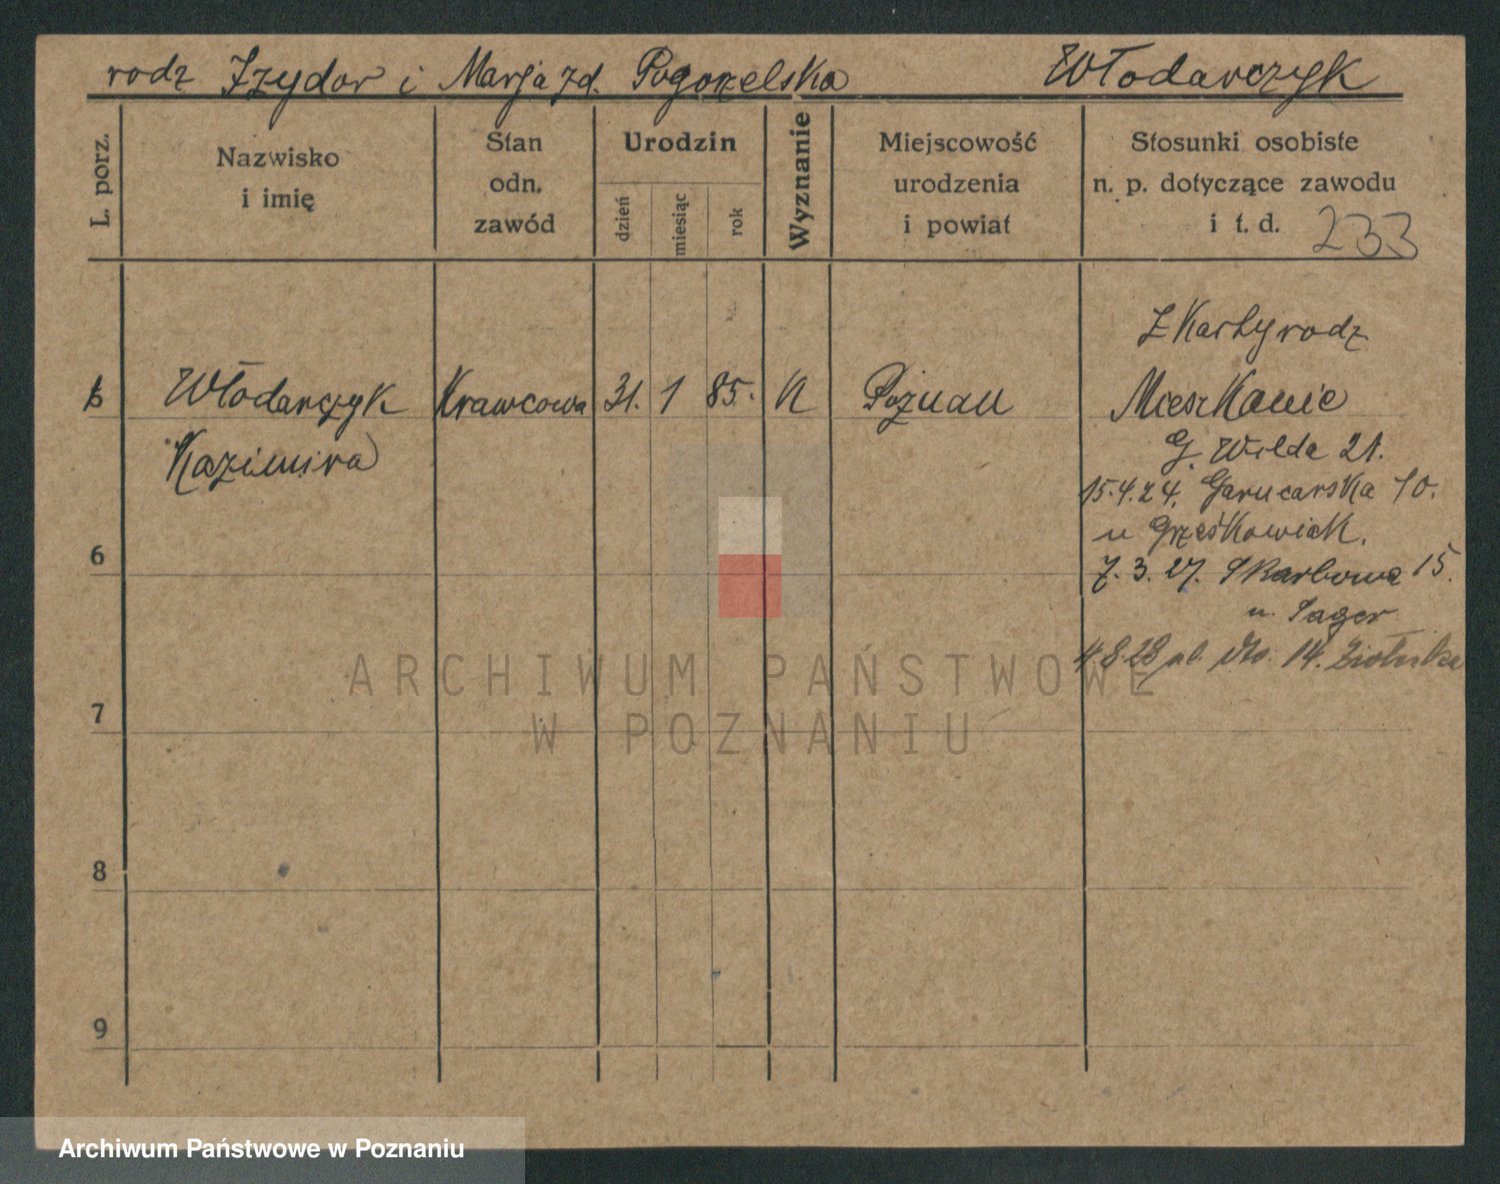 rodz Izydor i Marja zd. Pogorzelska Włodarczyk
L. porz.
Nazwisko
i imię
Stan
odn.
zawód
Urodzin
dzień
miesiąc
rok
Wyznanie
Miejscowość
urodzenia
i powiat
Stosunki osobiste
n. p. dotyczące zawodu
i t. d. 233
Z Karty rodz
Włodarczyk Krawcowa 31. 1 85. K Poznań Mieszkanie
Kazimira
G. Wilda 21.
15.4.24. Garncarska 10.
u Grześkowiak.
7.3.27. Skarbowa 15.
u. Sager
4.8.28 14.
6
7
8
9
ARCHIWUM PAŃSTWOWE
W POZNANIU
Archiwum Państwowe w Poznaniu